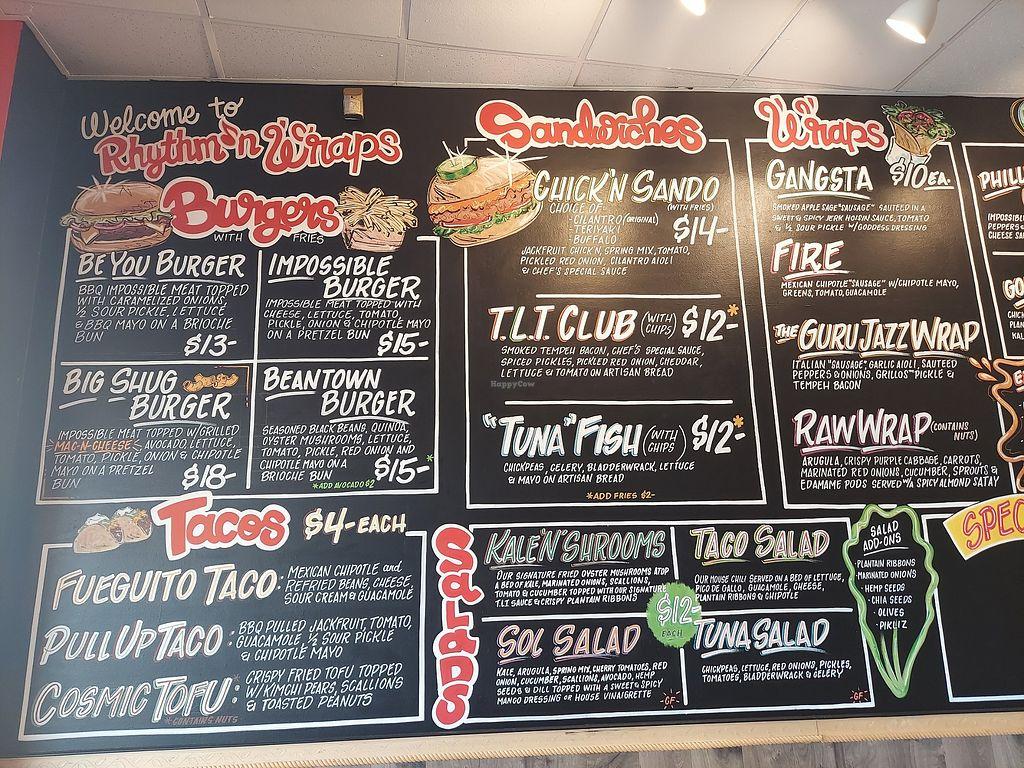 Welcome to
Rhythm 'n Wraps
Burgers
WITH FRIES
BE YOU BURGER
BBQ IMPOSSIBLE MEAT TOPPED
WITH CARAMELIZED ONIONS,
½ SOUR PICKLE, LETTUCE
& BBQ MAYO ON A BRIOCHE
BUN
$13-
IMPOSSIBLE
BURGER
IMPOSSIBLE MEAT TOPPED WITH
CHEESE, LETTUCE, TOMATO,
PICKLE, ONION & CHIPOTLE MAYO
ON A PRETZEL BUN
$15-
BIG SHUG
BURGER
IMPOSSIBLE MEAT TOPPED W/GRILLED
MAC-N-CHEESE AVOCADO, LETTUCE,
TOMATO, PICKLE, ONION & CHIPOTLE
MAYO ON A PRETZEL
BUN
$18-
BEANTOWN
BURGER
SEASONED BLACK BEANS, QUINOA,
OYSTER MUSHROOMS, LETTUCE,
TOMATO, PICKLE, RED ONION AND
CHIPOTLE MAYO ON A
BRIOCHE BUN
$15-*
*ADD AVOCADO $2
Tacos $4- EACH
FUEGUITO TACO: MEXICAN CHIPOTLE and
REFRIED BEANS, CHEESE,
SOUR CREAM & GUACAMOLE
PULL UP TACO: BBQ PULLED JACKFRUIT, TOMATO,
GUACAMOLE, ½ SOUR PICKLE
& CHIPOTLE MAYO
COSMIC TOFU*: CRISPY FRIED TOFU TOPPED
W/KIMCHI PEARS, SCALLIONS
& TOASTED PEANUTS
*CONTAINS NUTS
Sandwiches
CHICK'N SANDO
(WITH FRIES)
CHOICE OF
- CILANTRO (ORIGINAL)
- TERIYAKI
- BUFFALO
$14-
JACKFRUIT CHICK'N, SPRING MIX, TOMATO,
PICKLED RED ONION, CILANTRO AIOLI
& CHEF'S SPECIAL SAUCE
T.L.T. CLUB (WITH CHIPS) $12-*
SMOKED TEMPEH BACON, CHEF'S SPECIAL SAUCE,
SPICED PICKLES, PICKLED RED ONION, CHEDDAR,
LETTUCE & TOMATO ON ARTISAN BREAD
HappyCow
"TUNA" FISH (WITH CHIPS) $12-*
CHICKPEAS, CELERY, BLADDERWRACK, LETTUCE
& MAYO ON ARTISAN BREAD
*ADD FRIES $2-
Wraps
$10 EA.
GANGSTA
SMOKED APPLE SAGE "SAUSAGE" SAUTEED IN A
SWEET & SPICY JERK HOISIN SAUCE, TOMATO
& ½ SOUR PICKLE W/GODDESS DRESSING
FIRE
MEXICAN CHIPOTLE "SAUSAGE" W/CHIPOTLE MAYO,
GREENS, TOMATO, GUACAMOLE
THE GURU JAZZ WRAP
ITALIAN "SAUSAGE", GARLIC AIOLI, SAUTEED
PEPPERS & ONIONS, GRILLOS™ PICKLE &
TEMPEH BACON
RAW WRAP (CONTAINS NUTS)
ARUGULA, CRISPY PURPLE CABBAGE, CARROTS,
MARINATED RED ONIONS, CUCUMBER, SPROUTS &
EDAMAME PODS SERVED W/A SPICY ALMOND SATAY
Salads
$12-
EACH
KALE'N'SHROOMS
OUR SIGNATURE FRIED OYSTER MUSHROOMS ATOP
A BED OF KALE, MARINATED ONIONS, SCALLIONS,
TOMATO & CUCUMBER TOPPED WITH OUR SIGNATURE
T.L.T SAUCE & CRISPY PLANTAIN RIBBONS
TACO SALAD
OUR HOUSE CHILI SERVED ON A BED OF LETTUCE,
PICO DE GALLO, GUACAMOLE, CHEESE,
PLANTAIN RIBBONS & CHIPOTLE
SOL SALAD
KALE, ARUGULA, SPRING MIX, CHERRY TOMATOES, RED
ONION, CUCUMBER, SCALLIONS, AVOCADO, HEMP
SEEDS & DILL TOPPED WITH A SWEET & SPICY
MANGO DRESSING OR HOUSE VINAIGRETTE
GF
TUNA SALAD
CHICKPEAS, LETTUCE, RED ONIONS, PICKLES,
TOMATOES, BLADDERWRACK & CELERY
GF
SALAD
ADD-ONS
- PLANTAIN RIBBONS
- MARINATED ONIONS
- HEMP SEEDS
- CHIA SEEDS
- OLIVES
- PIKLIZ
PHILL
IMPOSSIB
PEPPERS &
CHEESE SA
GO
PLAN
KAL
SPEC